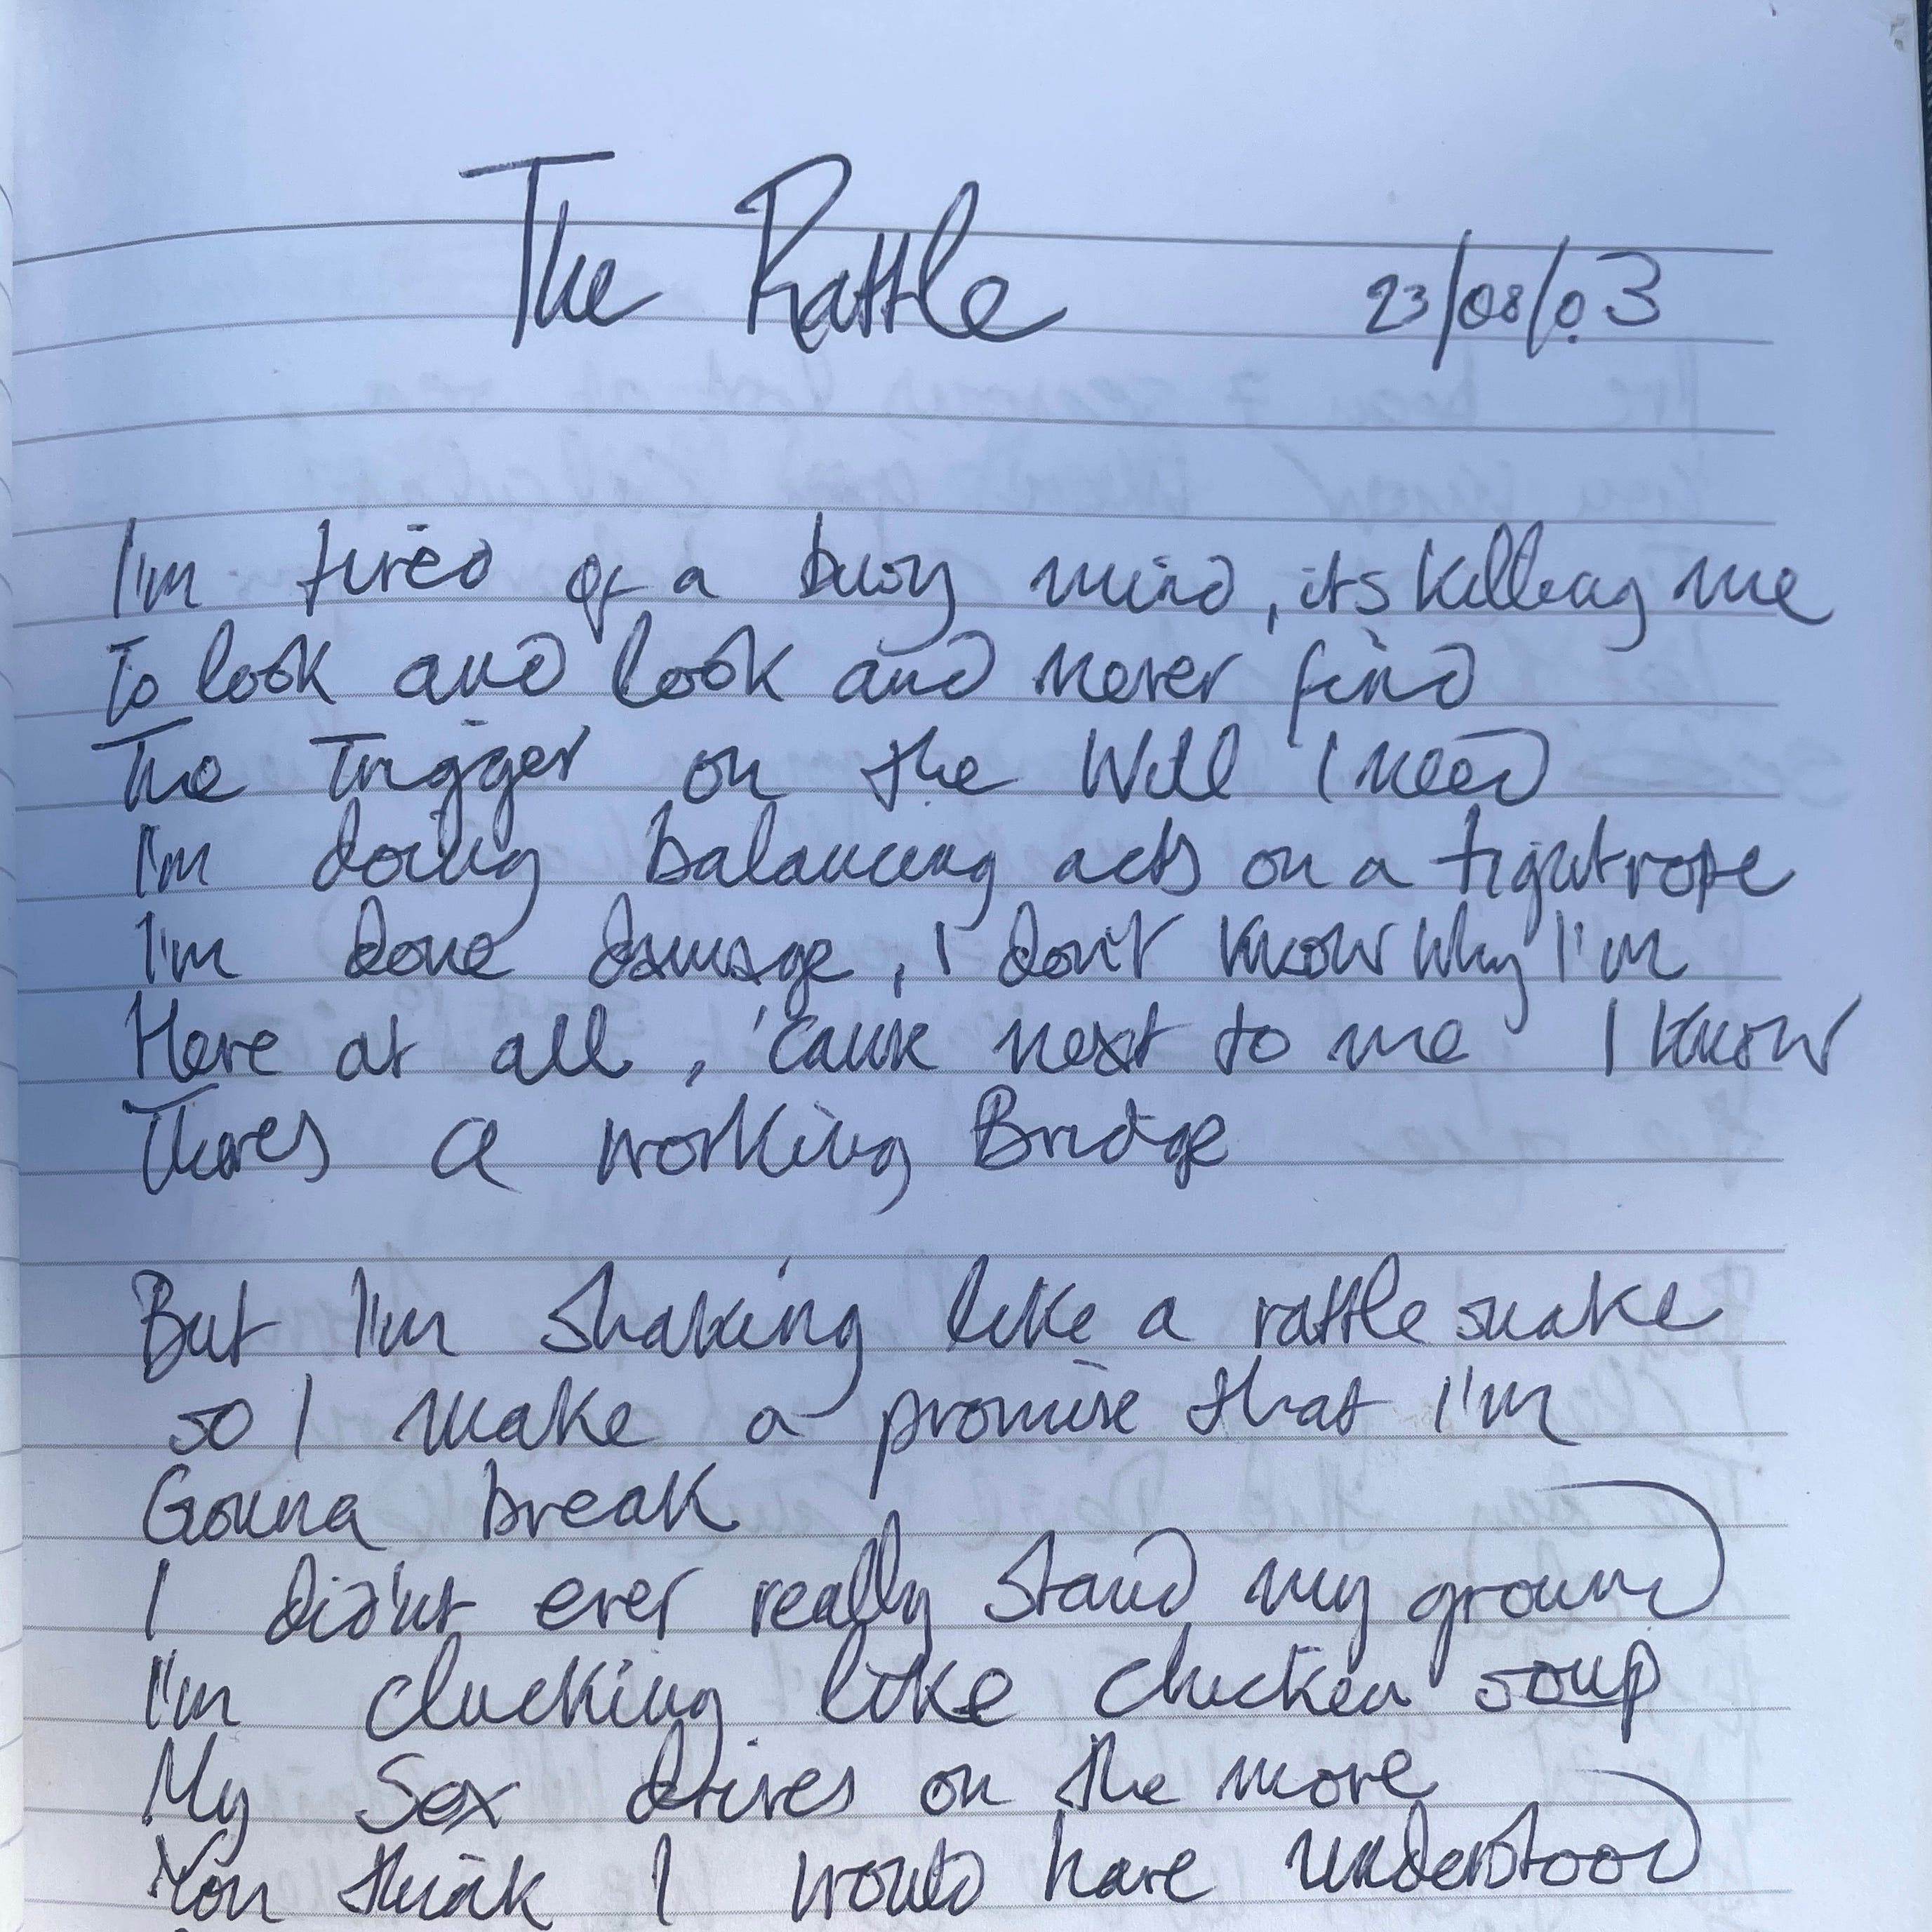 The Rattle 23/08/03
I'm tired of a busy mind, its killing me
To look and look and never find
The Trigger on the Will I need
I'm doing balancing acts on a tightrope
I'm done damage, I don't know why I'm
Here at all, 'cause next to me I know
Theres a working Bridge
But I'm shaking like a rattle snake
so I make a promise that I'm
Gonna break
I didn't ever really stand my ground
I'm clucking like chicken soup
My Sex drives on the move
You think I would have understood